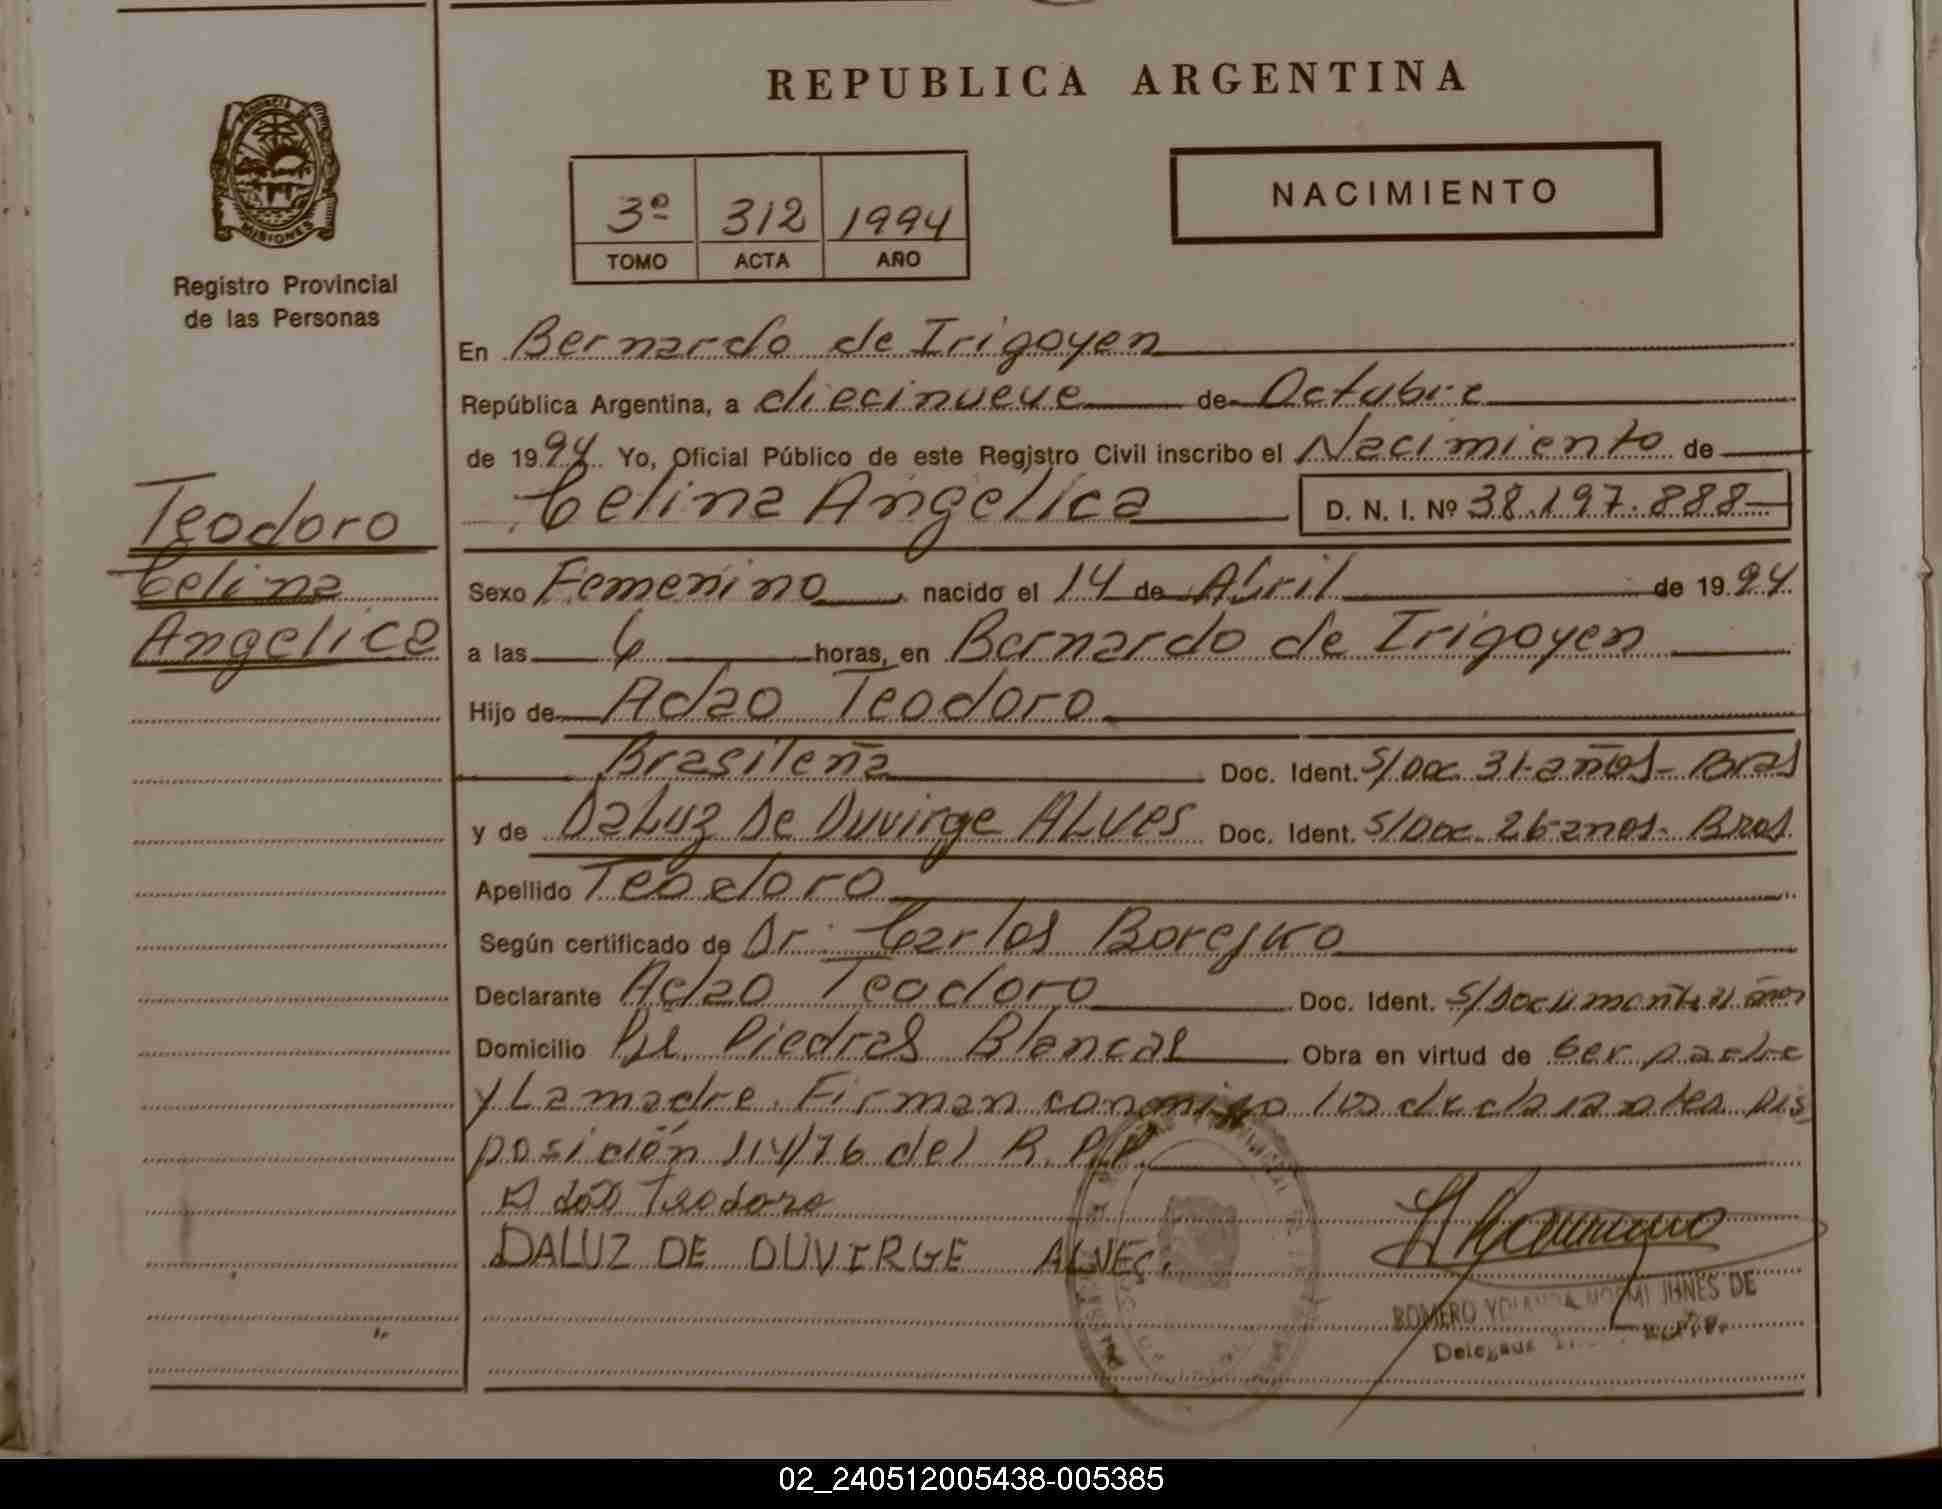 REPUBLICA ARGENTINA
PROVINCIA DE
MISIONES
Registro Provincial
de las Personas
3º 312 1994
TOMO ACTA AÑO
NACIMIENTO
Teodoro
Celina
Angelica
En Bernardo de Irigoyen
República Argentina, a diecinueve de Octubre
de 1994 Yo, Oficial Público de este Registro Civil inscribo el Nacimiento de
Celina Angelica D. N. I. Nº 38.197.888
Sexo Femenino nacido el 14 de Abril de 1994
a las 6 horas, en Bernardo de Irigoyen
Hijo de Adao Teodoro
Brasileña Doc. Ident. S/Doc 31-años- Bras
y de DaLuz De Duvirge ALves Doc. Ident. S/Doc 26-anos- Bras.
Apellido Teodoro
Según certificado de Dr. Carlos Borejko
Declarante Adao Teodoro Doc. Ident. años
Domicilio Piedras Blancas Obra en virtud de Ser padre
y La madre. Firman conmigo los declarantes Dis
posición 114/76 del R. P. P.
Adão Teodoro
DALUZ DE DUVIRGE ALVES.
ROMERO YOLANDA NOEMI DE
02_240512005438-005385